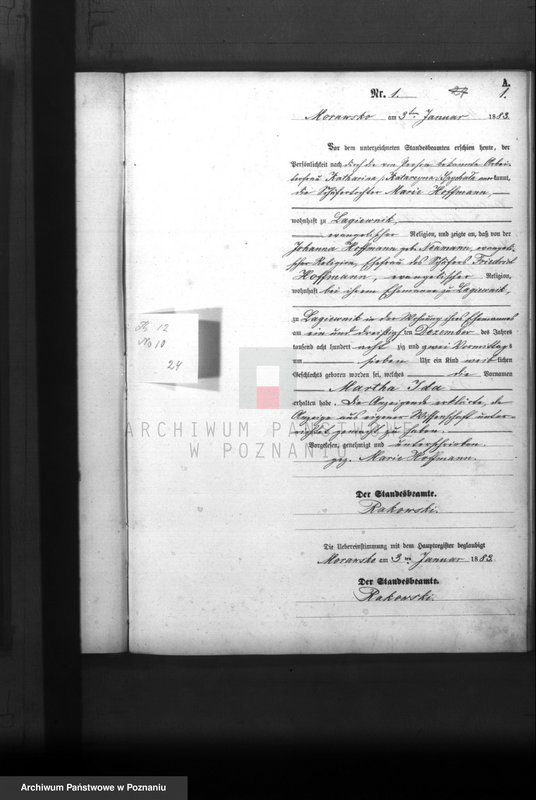 A.
Nr. 1.
1.
Morawsko am 3ten Januar 1883.
Vor dem unterzeichneten Standesbeamten erschien heute, der
Persönlichkeit nach durch die von Person bekannte Arbei-
terfrau Katharina (Katarzyna) Spychała anerkannt,
die Schäfertochter Marie Hoffmann,
wohnhaft zu Lagiewnik,
evangelischer Religion, und zeigte an, daß von der
Johanna Hoffmann geb. Neumann, evangeli-
scher Religion, Ehefrau des Schäfers
Hoffmann, evangelischer Religion,
wohnhaft bei ihrem Ehemanne zu Lagiewnik,
zu Lagiewnik in der Wohnung ihres Ehemannes
am ein und dreißigsten Dezember des Jahres
tausend acht hundert acht zig und zwei Vormittags
um sieben Uhr ein Kind weib lichen
Geschlechts geboren worden sei, welches die Vornamen
Martha Ida
erhalten habe. Die Anzeigende erklärte, die
Anzeige aus eigener Wissenschaft unter-
richtet gemacht zu haben.
Vorgelesen, genehmigt und unterschrieben
gez. Marie Hoffmann.
Der Standesbeamte.
Rakowski.
Die Uebereinstimmung mit dem Hauptregister beglaubigt
Morawsko am 3ten Januar 1883.
Der Standesbeamte.
Rakowski.
No 12
No 10
24
ARCHIWUM PAŃSTWOWE
W POZNANIU
Archiwum Państwowe w Poznaniu